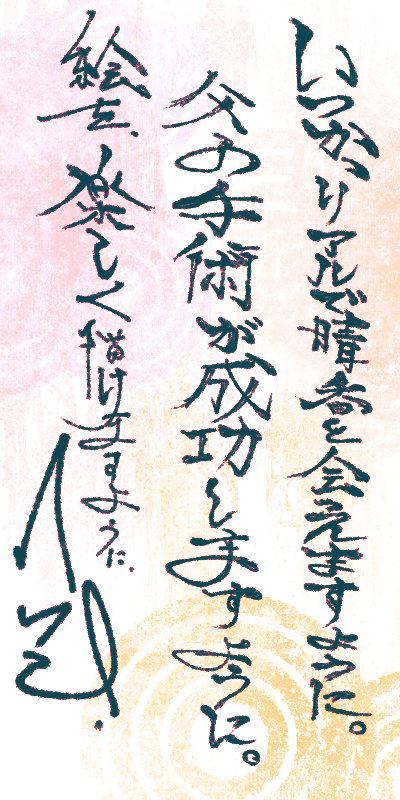 いつかリアルで晴香と会えますように。
父の手術が成功しますように。
絵を、楽しく描けますように。